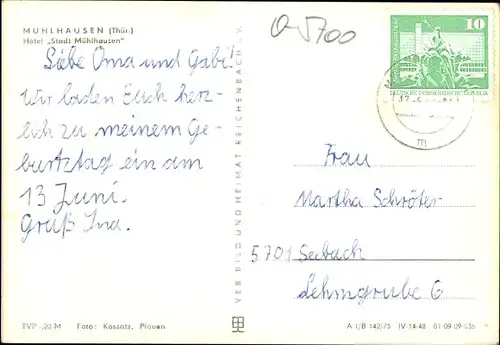 MÜHLHAUSEN (Thür.)
Hotel „Stadt Mühlhausen"
Liebe Oma und Gabi!
Wir laden Euch herz-
lich zu meinem Ge-
burtstag ein am
13 Juni.
Gruß Ina.
EVP -,20 M Foto: Kossatz, Plauen
VEB BILD UND HEIMAT REICHENBACH i. V.
5700
10
DEUTSCHE DEMOKRATISCHE REPUBLIK
m
Frau
Martha Schröter
5701 Seebach
Lehmgrube 6
A 1/B 142/75 IV-14-48 01 09 09 036